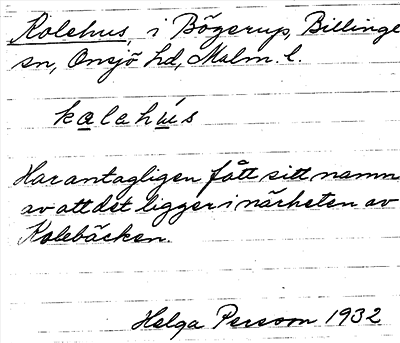 Kolehus, i Bögerup, Billinge
sn, Onsjö hd, Malm. l.
kalehús
Har antagligen fått sitt namn
av att det ligger i närheten av
Kolebäcken.
Helga Persson 1932